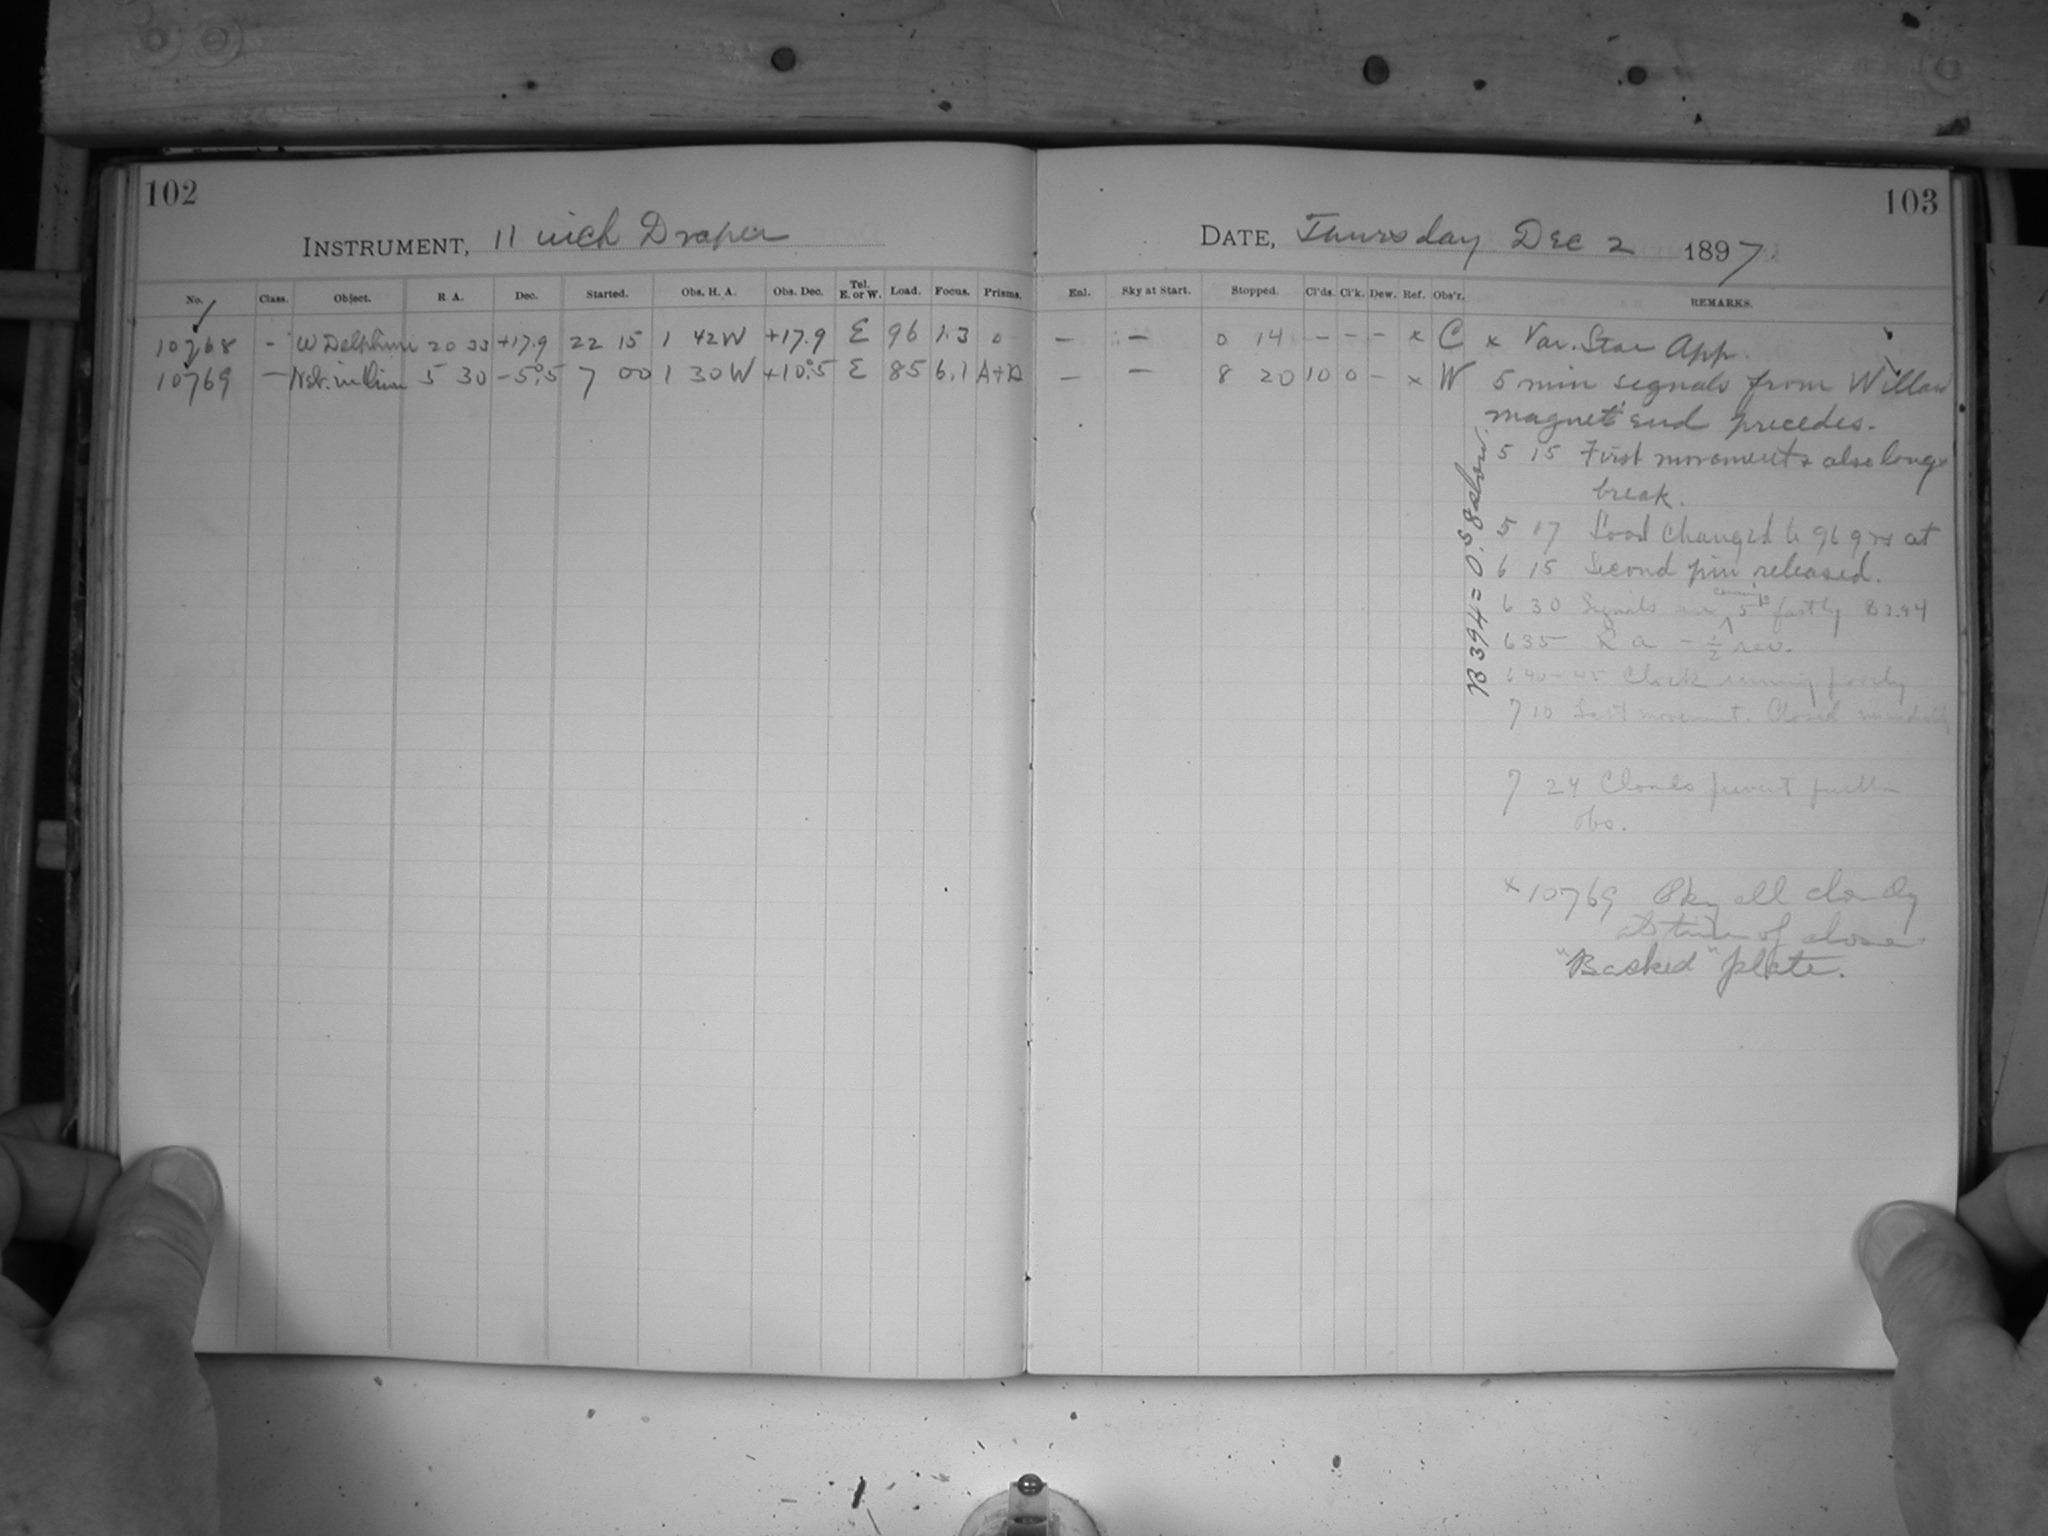 102
INSTRUMENT, 11 inch Draper
No. Class. Object. R. A. Dec. Started. Obs. H. A. Obs. Dec. Tel. E. or W. Load. Focus. Prisms.
10768 - W Delphini 20 33 +17.9 22 15 1 42 W +17.9 E 96 1.3 0
10769 - Neb. in Orion 5 30 -5.5 7 00 1 30 W +10.5 E 85 6.1 A+D
103
DATE, Thursday Dec 2 1897
Enl. Sky at Start. Stopped. Cl'ds. Cl'k. Dew. Ref. Obs'r. REMARKS.
- - 0 14 - - - x C x Var. Star App.
- - 8 20 10 0 - x W 5 min signals from Willard
magnet end precedes.
5 15 First movement & also long
break.
5 17 Load changed to 96 grs at
6 15 Second pin released.
6 30 Signals 5 fastly B 394
6 35 R a - 1/2 rev.
6 40-45 Clock running poorly
7 10 Last movement. Closed
B 394 = 0.58 slow.
7 24 Clouds prevent further
obs.
x 10769 Sky all cloudy
at time of close
"Backed" plate.